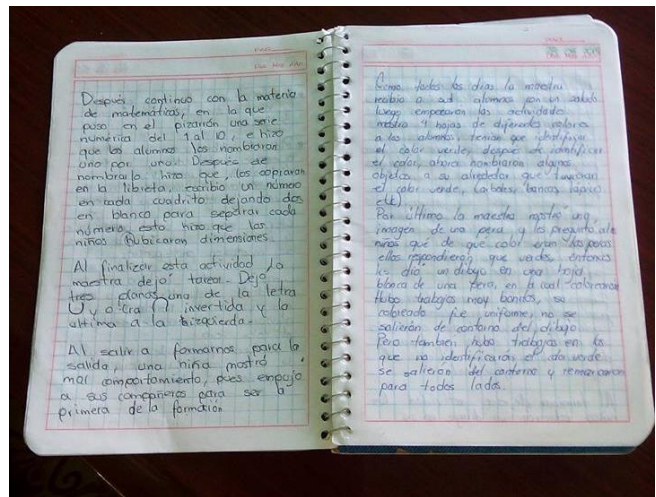 Después continuo con la materia
de matemáticas, en la que
puso en el pizarrón una serie
numérica del 1 al 10, e hizo
que los alumnos los nombraran
uno por uno. Después de
nombrarlo hizo que, los copiaran
en la libreta, escribio un número
en cada cuadrito dejando dos
en blanco para separar cada
número, esto hizo que los
niños Rubicaron dimensiones.
Al finalizar esta actividad la
maestra dejo tarea. Dejo
tres planas una de la letra
U y otra invertida y la
ultima a la izquierda.
Al salir a formarnos para la
salida, una niña mostró
mal comportamiento, pues empujo
a sus compañeros para ser la
primera de la formación
Como todos los días la maestra
recibio a sus alumnos con un saludo
luego empezaron las actividades
mostro 4 hojas de diferentes colores
a los alumnos, tenian que identificar
el color verde, después de identificar
el color, ahora nombraron algunos
objetos a su alrededor que tuvieran
el color verde, (arboles, bancas, lapices
etc)
Por último la maestra mostró una
imagen de una pera y les pregunto a los
niños qué de que color eran las peras
ellos respondieron que verdes, entonces
les dio un dibujo en una hoja
blanca de una pera, en la cual colorearon
Hubo trabajos muy bonitos, su
coloreado fue uniforme, no se
salieron de contorno del dibujo
Pero tambien hubo trabajos en los
que no identificaron el verde
se salieron del contorno y remarcaron
para todos lados.